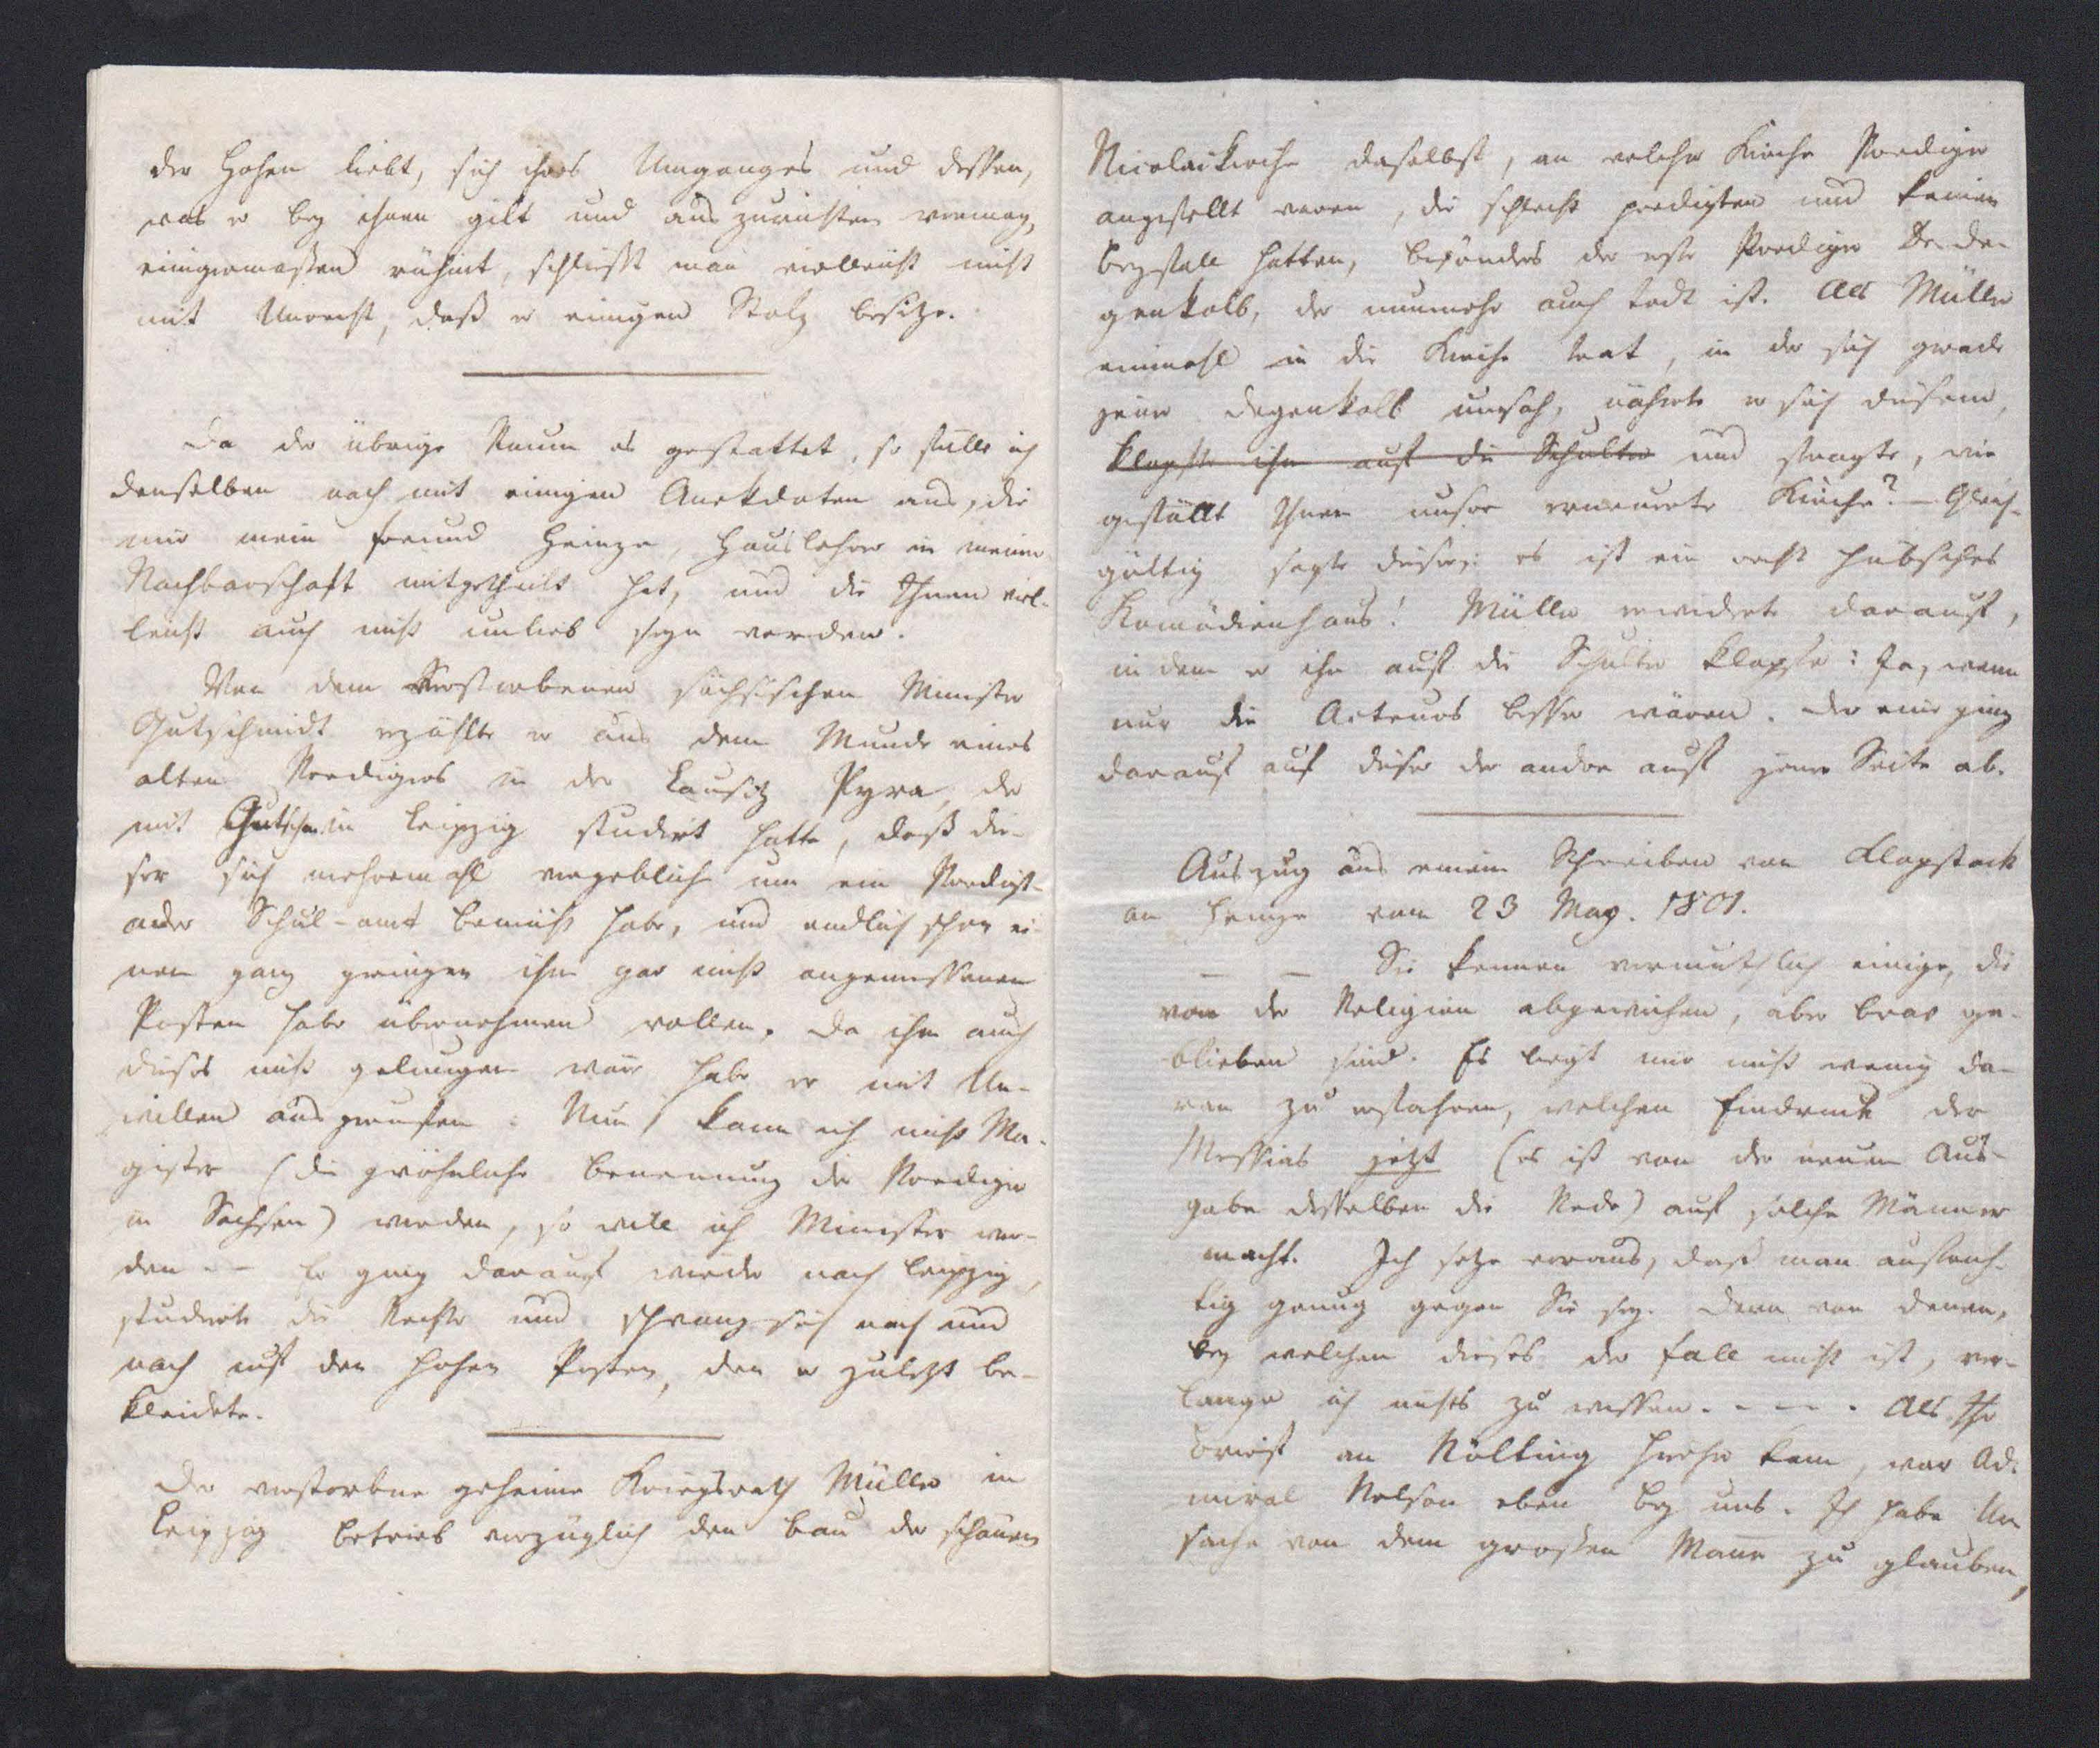 der Hohen liebt, sich ihres Umganges und dessen,
was er bey ihnen gilt und auszurichten vermag,
einigermassen rühmt, schliesst man vielleicht nicht
mit Unrecht, daß er einigen Stolz besitze.
Da der übrige Raum es gestattet, so fülle ich
denselben noch mit einigen Anekdoten aus, die
mir mein Freund Heinze, Hauslehrer in meiner
Nachbarschaft mitgetheilt hat, und die Ihnen viel-
leicht auch nicht unlieb seyn werden.
Von dem verstorbenen sächsischen Minister
Gutschmidt erzählte er aus dem Munde eines
alten Predigers in der Lausitz Pyra, der
mit Gutschm. in Leipzig studirt hatte, daß die-
ser sich mehremahl vergeblich um ein Predigt-
oder Schul-amt bemüht habe, und endlich schon ei-
nen ganz geringen ihm gar nicht angemessenen
Posten habe übernehmen wollen. Da ihm auch
dieses nicht gelungen wäre habe er mit Un-
willen ausgerufen: Nun kann ich nicht Ma-
gister (die gewöhnliche Benennung der Prediger
in Sachsen) werden, so will ich Minister wer-
den – – Er ging darauf wieder nach Leipzig,
studirte die Rechte und schwang sich nach und
nach auf den hohen Posten, den er zuletzt be-
kleidete.
Der verstorbne geheime Kriegsrath Müller in
Leipzig betrieb vorzüglich den Bau der schönen
Nicolaikirche daselbst, an welcher Kirche Prediger
angestellt waren, die schlecht predigten und keinen
Beyfall hatten, besonders der erste Prediger De-
genkolb, der nunmehr auch todt ist. Als Müller
einmahl in die Kirche trat, in der sich grade
jener Degenkolb umsah, näherte er sich diesem,
klopfte ihn auf die Schulter und fragte, wie
gefällt Ihnen unsre erneuerte Kirche? – Gleich-
gültig sagte dieser: es ist ein recht hübsches
Komödienhaus! Müller erwiderte darauf,
indem er ihn auf die Schulter klopfte: Ja, wenn
nur die Acteurs besser wären. Der eine ging
darauf auf dieser der andre auf jener Seite ab.
Auszug aus einem Schreiben von Klopstock
an Heinze vom 23 May. 1801.
– – Sie kennen vermuthlich einige, die
von der Religion abgewichen, aber brav ge-
blieben sind. Es liegt mir nicht wenig da-
ran zu erfahren, welchen Eindruck der
Messias jetzt (es ist von der neuen Aus-
gabe desselben die Rede) auf solche Männer
macht. Ich setze voraus, daß man aufrich-
tig genug gegen Sie sey. Denn von denen,
bey welchen dieses der Fall nicht ist, ver-
lange ich nichts zu wissen. – – – . Als Ihr
Brief an Nölting hieher kam, war Ad-
miral Nelson eben bey uns. Ich habe Ur
sache von dem grossen Mann zu glauben,